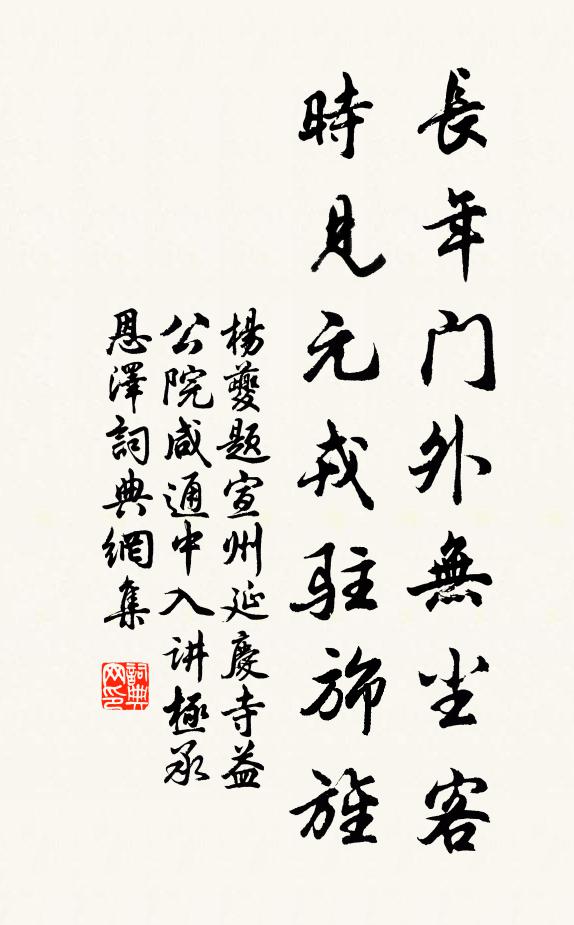 長年门外無尘客
時見元戎駐旆旌
楊夔題宣州延慶寺益
公院咸通中入讲極承
恩澤詞典網集
詞典
网印